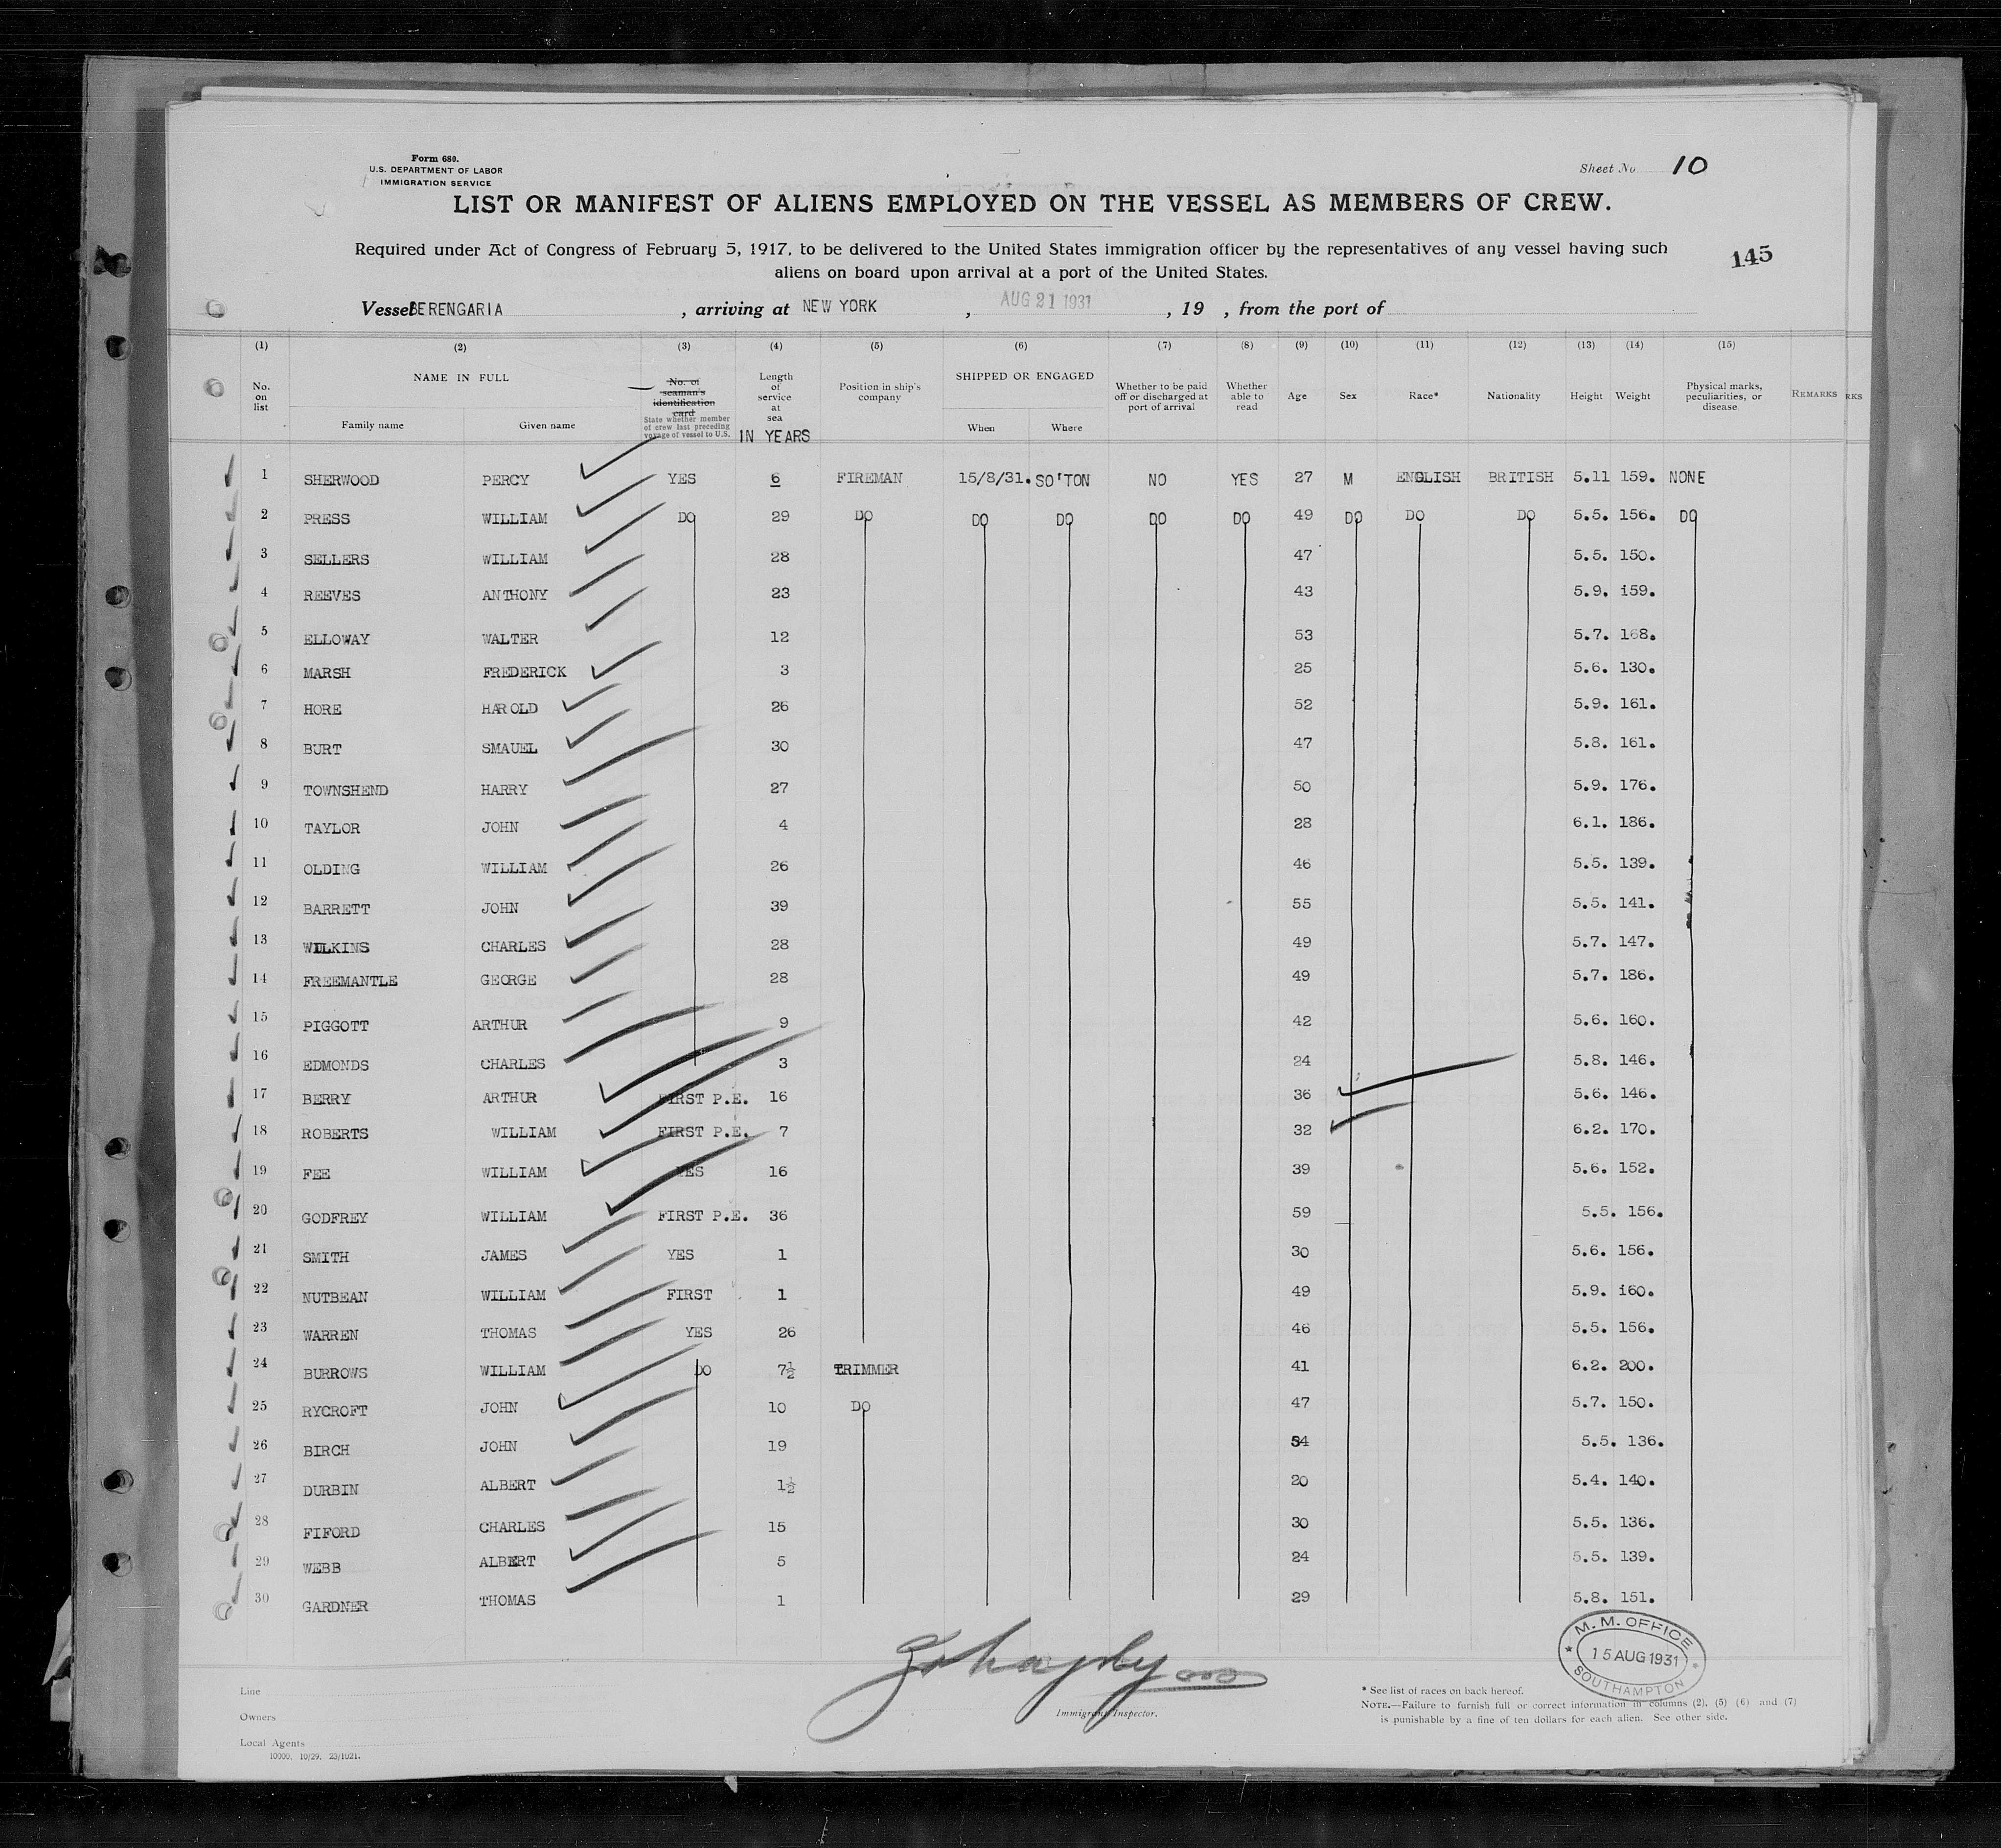 Form 680.
U.S. DEPARTMENT OF LABOR
IMMIGRATION SERVICE
Sheet No 10
LIST OR MANIFEST OF ALIENS EMPLOYED ON THE VESSEL AS MEMBERS OF CREW.
Required under Act of Congress of February 5, 1917, to be delivered to the United States immigration officer by the representatives of any vessel having such
aliens on board upon arrival at a port of the United States.
145
Vessel BERENGARIA, arriving at NEW YORK, AUG 21 1931, 19 , from the port of
(1) (2) (3) (4) (5) (6) (7) (8) (9) (10) (11) (12) (13) (14) (15)
No. on list NAME IN FULL Family name Given name No. of seaman's identification card State whether member of crew last preceding voyage of vessel to U.S. Length of service at sea IN YEARS Position in ship's company SHIPPED OR ENGAGED When Where Whether to be paid off or discharged at port of arrival Whether able to read Age Sex Race* Nationality Height Weight Physical marks, peculiarities, or disease REMARKS RKS
1 SHERWOOD PERCY YES 6 FIREMAN 15/8/31. SO'TON NO YES 27 M ENGLISH BRITISH 5.11 159. NONE
2 PRESS WILLIAM DO 29 DO DO DO DO DO 49 DO DO DO 5.5. 156. DO
3 SELLERS WILLIAM 28 47 5.5. 150.
4 REEVES ANTHONY 23 43 5.9. 159.
5 ELLOWAY WALTER 12 53 5.7. 168.
6 MARSH FREDERICK 3 25 5.6. 130.
7 HORE HAROLD 26 52 5.9. 161.
8 BURT SMAUEL 30 47 5.8. 161.
9 TOWNSHEND HARRY 27 50 5.9. 176.
10 TAYLOR JOHN 4 28 6.1. 186.
11 OLDING WILLIAM 26 46 5.5. 139.
12 BARRETT JOHN 39 55 5.5. 141.
13 WILKINS CHARLES 28 49 5.7. 147.
14 FREEMANTLE GEORGE 28 49 5.7. 186.
15 PIGGOTT ARTHUR 9 42 5.6. 160.
16 EDMONDS CHARLES 3 24 5.8. 146.
17 BERRY ARTHUR FIRST P.E. 16 36 5.6. 146.
18 ROBERTS WILLIAM FIRST P.E. 7 32 6.2. 170.
19 FEE WILLIAM YES 16 39 5.6. 152.
20 GODFREY WILLIAM FIRST P.E. 36 59 5.5. 156.
21 SMITH JAMES YES 1 30 5.6. 156.
22 NUTBEAN WILLIAM FIRST 1 49 5.9. 160.
23 WARREN THOMAS YES 26 46 5.5. 156.
24 BURROWS WILLIAM DO 7½ TRIMMER 41 6.2. 200.
25 RYCROFT JOHN 10 DO 47 5.7. 150.
26 BIRCH JOHN 19 34 5.5. 136.
27 DURBIN ALBERT 1½ 20 5.4. 140.
28 FIFORD CHARLES 15 30 5.5. 136.
29 WEBB ALBERT 5 24 5.5. 139.
30 GARDNER THOMAS 1 29 5.8. 151.
M. M. OFFICE
15 AUG 1931
SOUTHAMPTON
Line
Owners
Local Agents
10000. 10/29. 23/1021.
Immigrant Inspector.
* See list of races on back hereof.
NOTE.—Failure to furnish full or correct information in columns (2), (5) (6) and (7)
is punishable by a fine of ten dollars for each alien. See other side.